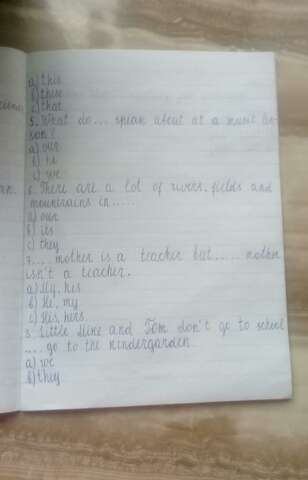 a) this
b) these
c) that
5. What do... speak about at a music les-
son?
a) our
b) he
c) we
6. There are a lot of rivers, fields and
mountrains in.....
a) our
b) its
c) they
7. ... mother is a teacher but...... mother
isn't a teacher.
a) My, his
b) He, my
c) His, hers
8. Little Mike and Tom don't go to school
.... go to the kindergarden.
a) we
b) they